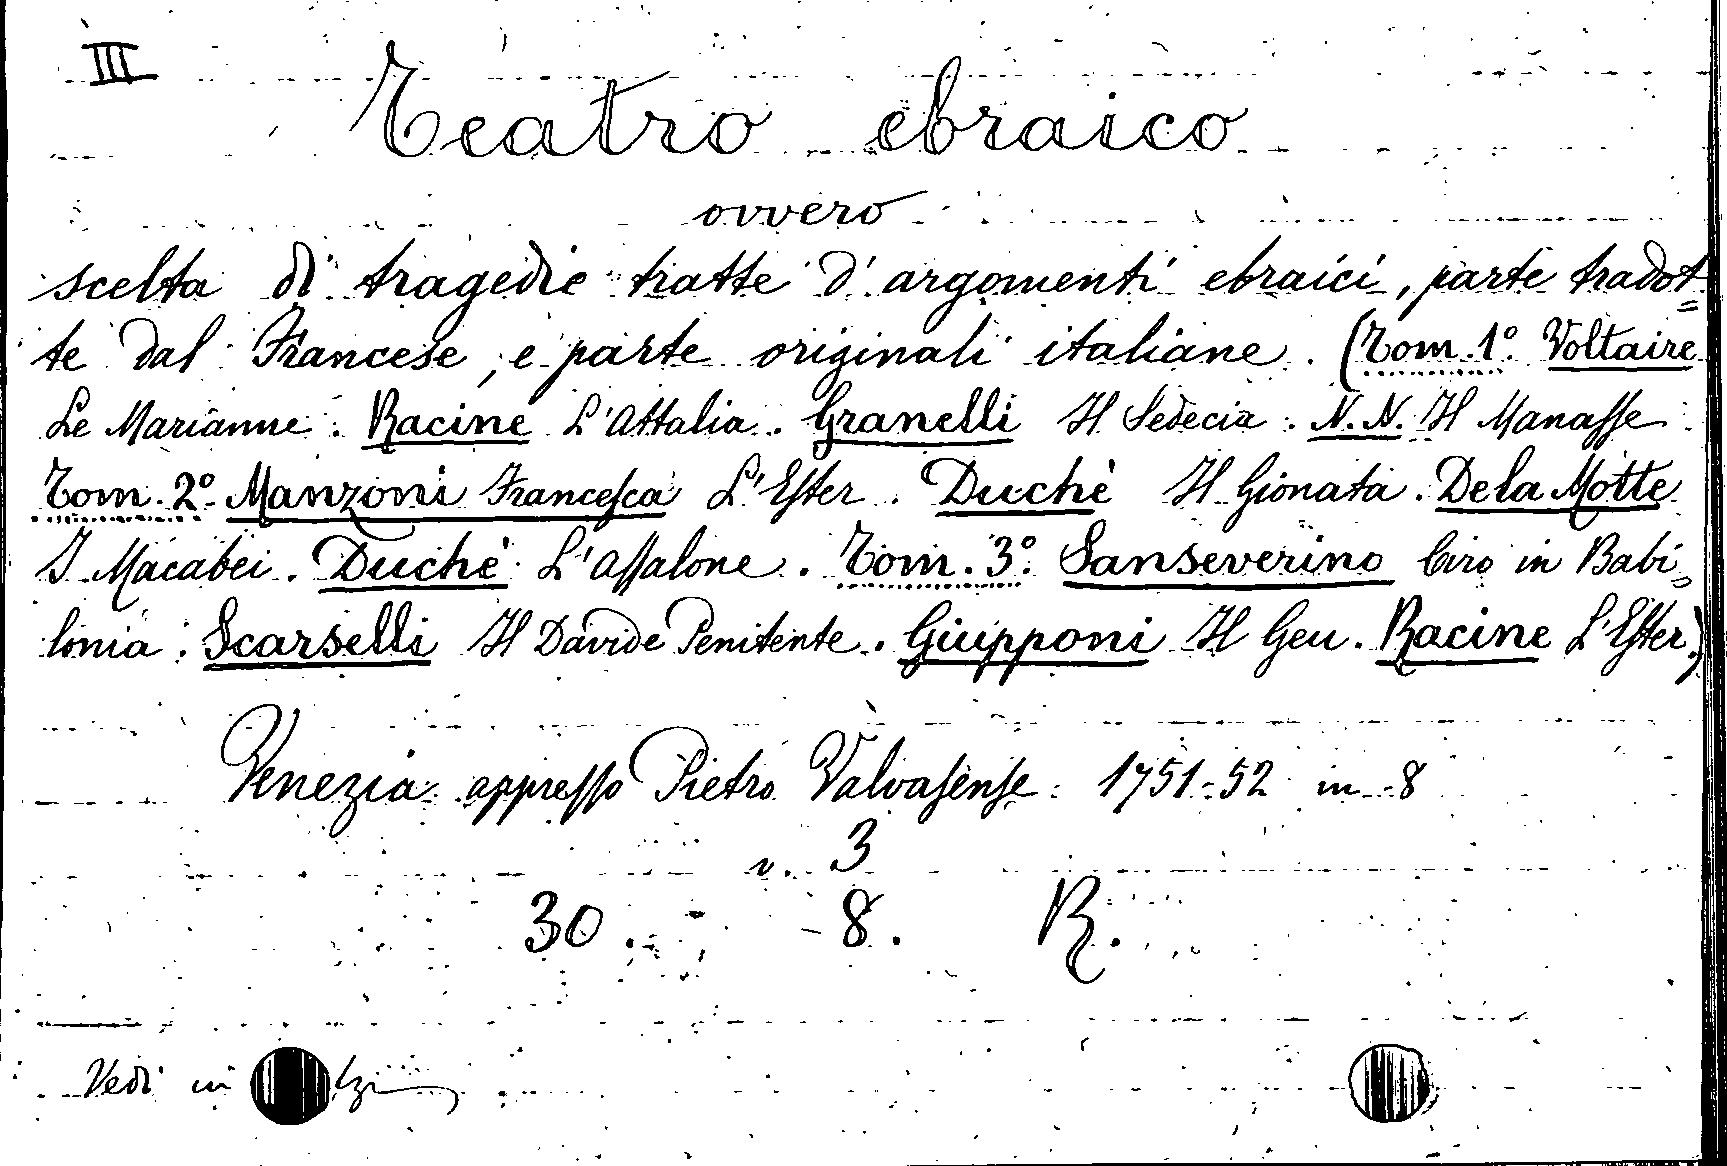 III
Teatro ebraico
ovvero
scelta di tragedie tratte d'argomenti ebraici, parte tradot=
te dal Francese, e parte originali italiane. (Tom. 1º. Voltaire
Le Marianne. Racine L'Attalia. Granelli Il Sedecia. N.N. Il Manasse
Tom. 2º. Manzoni Francesca L'Ester. Duchè Il Gionata. De la Motte
I Macabei. Duchè L'Assalone. Tom. 3º. Sanseverino Ciro in Babi=
lonia. Scarselli Il Davide Penitente. Giupponi Il Geu. Racine L'Ester.)
Venezia appresso Pietro Valvasense. 1751-52 in 8
v. 3
30. - 8. R.
Vedi in